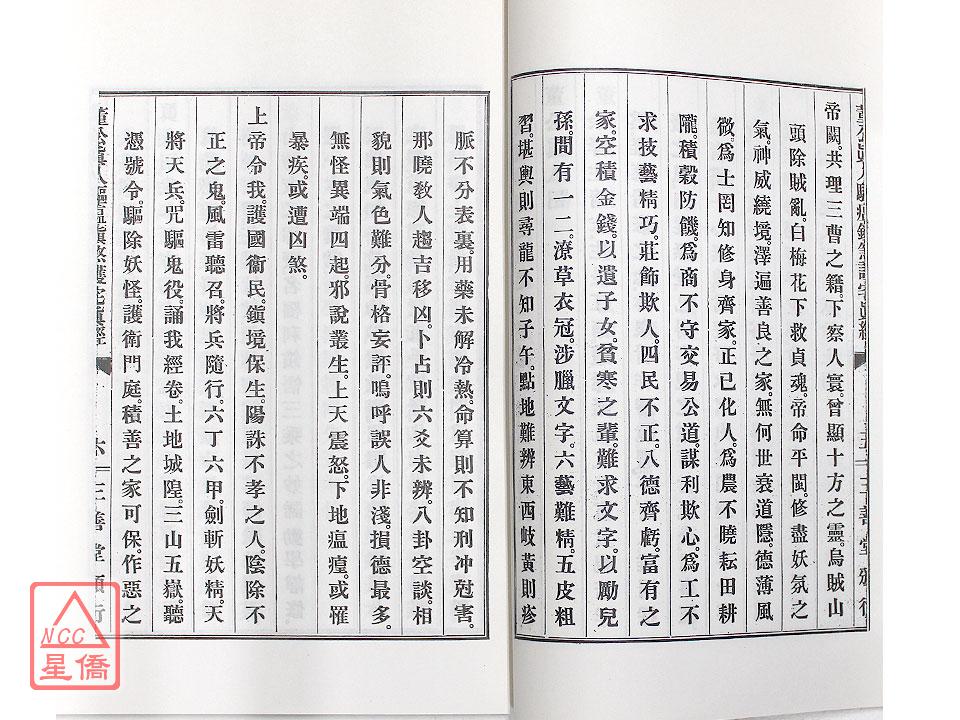 帝闕。共理三曹之籍。下察人寰。曾顯十方之靈。烏賊山
頭除賊亂。白梅花下救貞魂。帝命平閩。修盡妖氛之
氣。神威繞境。澤遍善良之家。無何世衰道隱。德薄風
微。爲士罔知修身齊家。正己化人。爲農不曉耘田耕
隴。積糓防饑。爲商不守交易公道。謀利欺心。爲工不
求技藝精巧。莊飾欺人。四民不正。八德齊虧。富有之
家。空積金錢。以遺子女。貧寒之輩。難求文字。以勵兒
孫。間有一二。潦草衣冠。涉臘文字。六藝難精。五皮粗
習。堪輿則尋龍不知子午。點地難辨東西。岐黃則疹
脈不分表裏。用藥未解冷熱。命算則不知刑冲尅害。
那曉敎人趨吉移凶。卜占則六爻未辨。八卦空談。相
貌則氣色難分。骨格妄評。嗚呼。誤人非淺。損德最多。
無怪異端四起。邪說叢生。上天震怒。下地瘟𤺄。或罹
暴疾。或遭凶煞。
上帝令我。護國衞民。鎭境保生。陽誅不孝之人。陰除不
正之鬼。風雷聽召。將兵隨行。六丁六甲。劍斬妖精。天
將天兵。咒驅鬼役。誦我經卷。土地城隍。三山五嶽。聽
憑號令。驅除妖怪。護衛門庭。積善之家可保。作惡之
六
三善堂
NCC
星僑